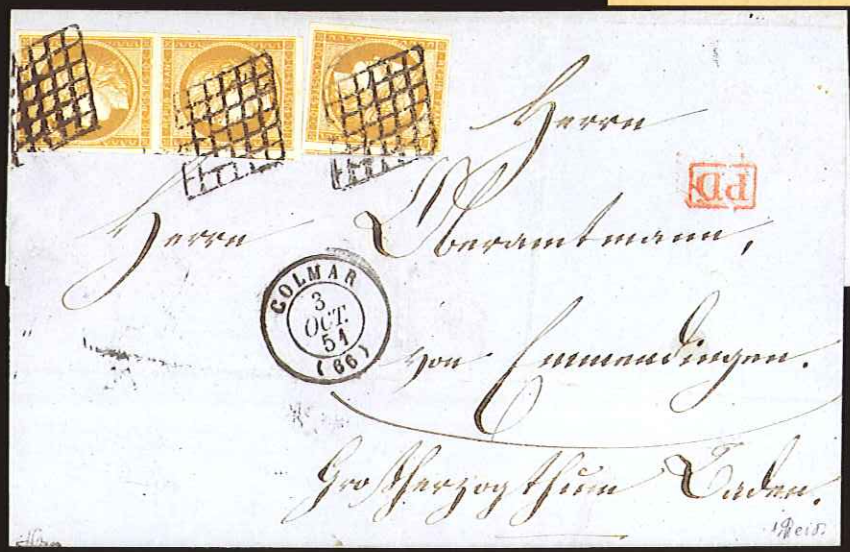 Herrn
PD
Herrn Oberamtmann,
COLMAR
3
OCT.
51
(66)
von Emmendingen.
Großherzogthum Baden.